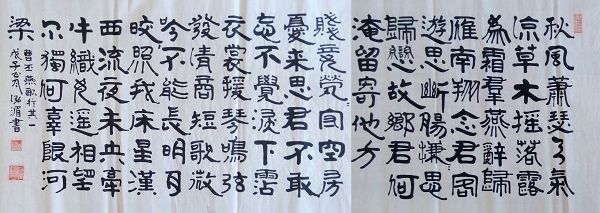 秋風蕭瑟天氣
涼草木摇落露
為霜群燕辭歸
雁南翔念君客
遊思斷腸慊々思
歸戀故鄉君何
淹留寄他方
賤妾煢々守空房
憂來思君不敢
忘不覺淚下霑
衣裳援琴鳴弦
發清商短歌微
吟不能長明月
皎々照我床星漢
西流夜未央牽
牛織女遥相望
尔獨何辜限河
梁
曹丕燕歌行其一
戊子 書